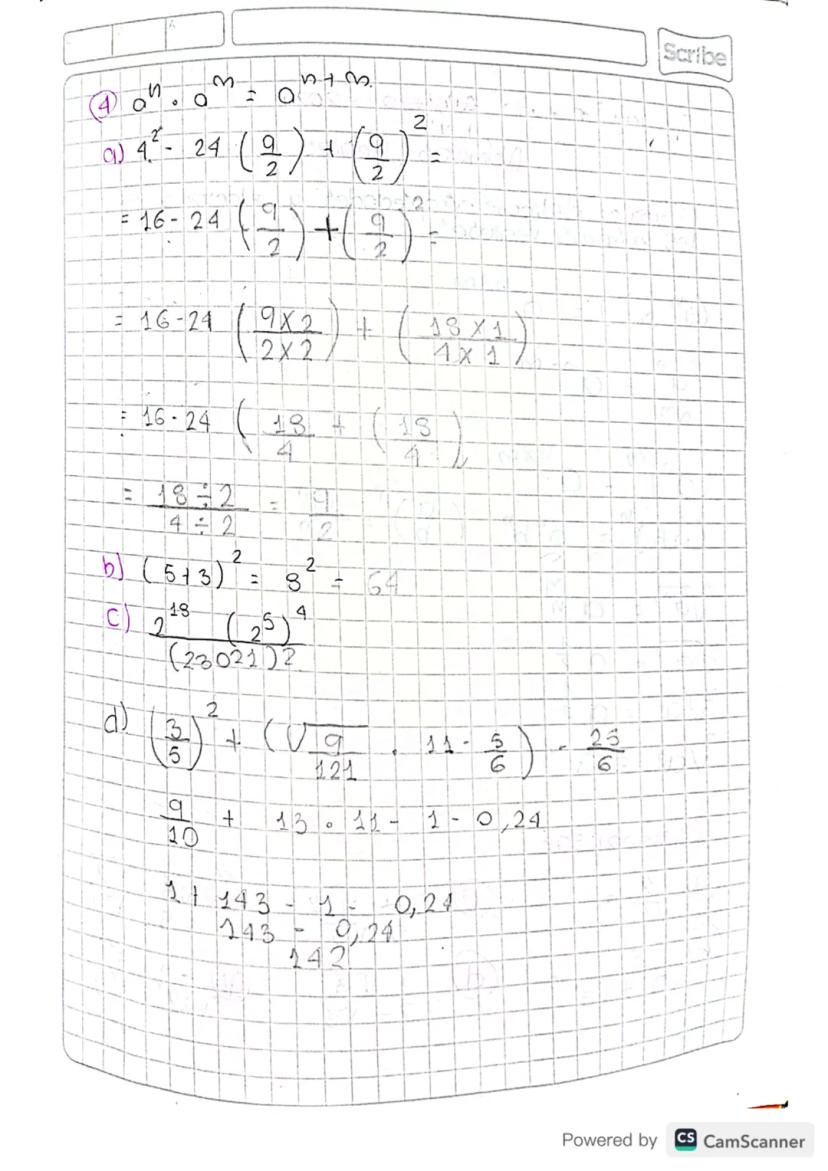 Scribe
④ aⁿ · aᵐ = aⁿ⁺ᵐ
a) 4² - 24 (9/2) + (9/2)² =
= 16 - 24 (9/2) + (9/2)² =
= 16 - 24 (9x2/2x2) + (18x1/4x1)
= 16 - 24 (18/4 + (18/4)
= 18÷2/4÷2 = 9/2
b) (5+3)² = 8² = 64
c) 2¹⁸ (2⁵)⁴/(23021)2
d) (3/5)² + (√9/121 · 11 - 5/6) - 25/6
9/10 + 13 · 11 - 1 - 0,24
1 + 143 - 1 - 0,24
143 - 0,24
142
Powered by CS CamScanner